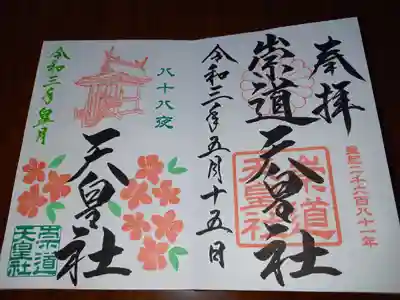 奉拝
崇道天皇社
皇紀二千六百八十一年
崇道天皇社
令和三年五月十五日
八十八夜
天皇社
令和三年皐月
崇道天皇社